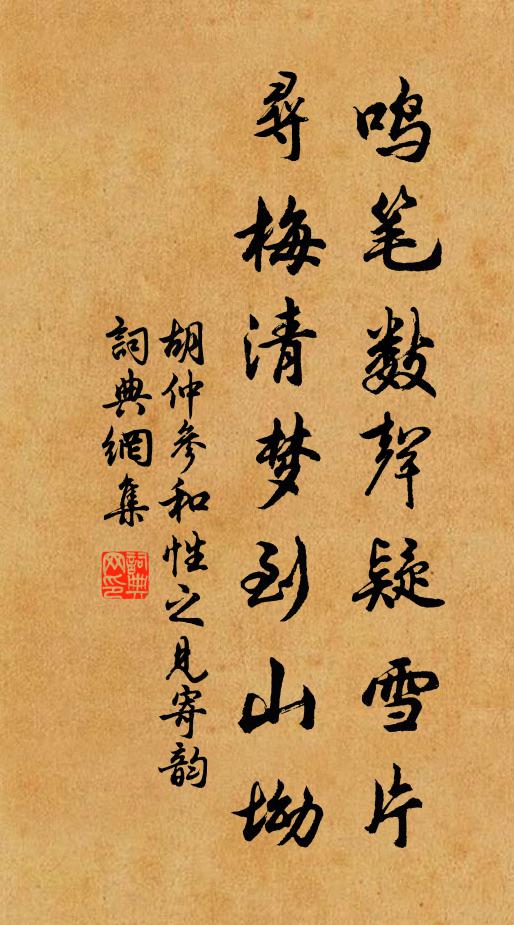 鸣笔数聲疑雪片
尋梅清梦到山坳
胡仲參和性之見寄韵
詞典網集
詞典网印